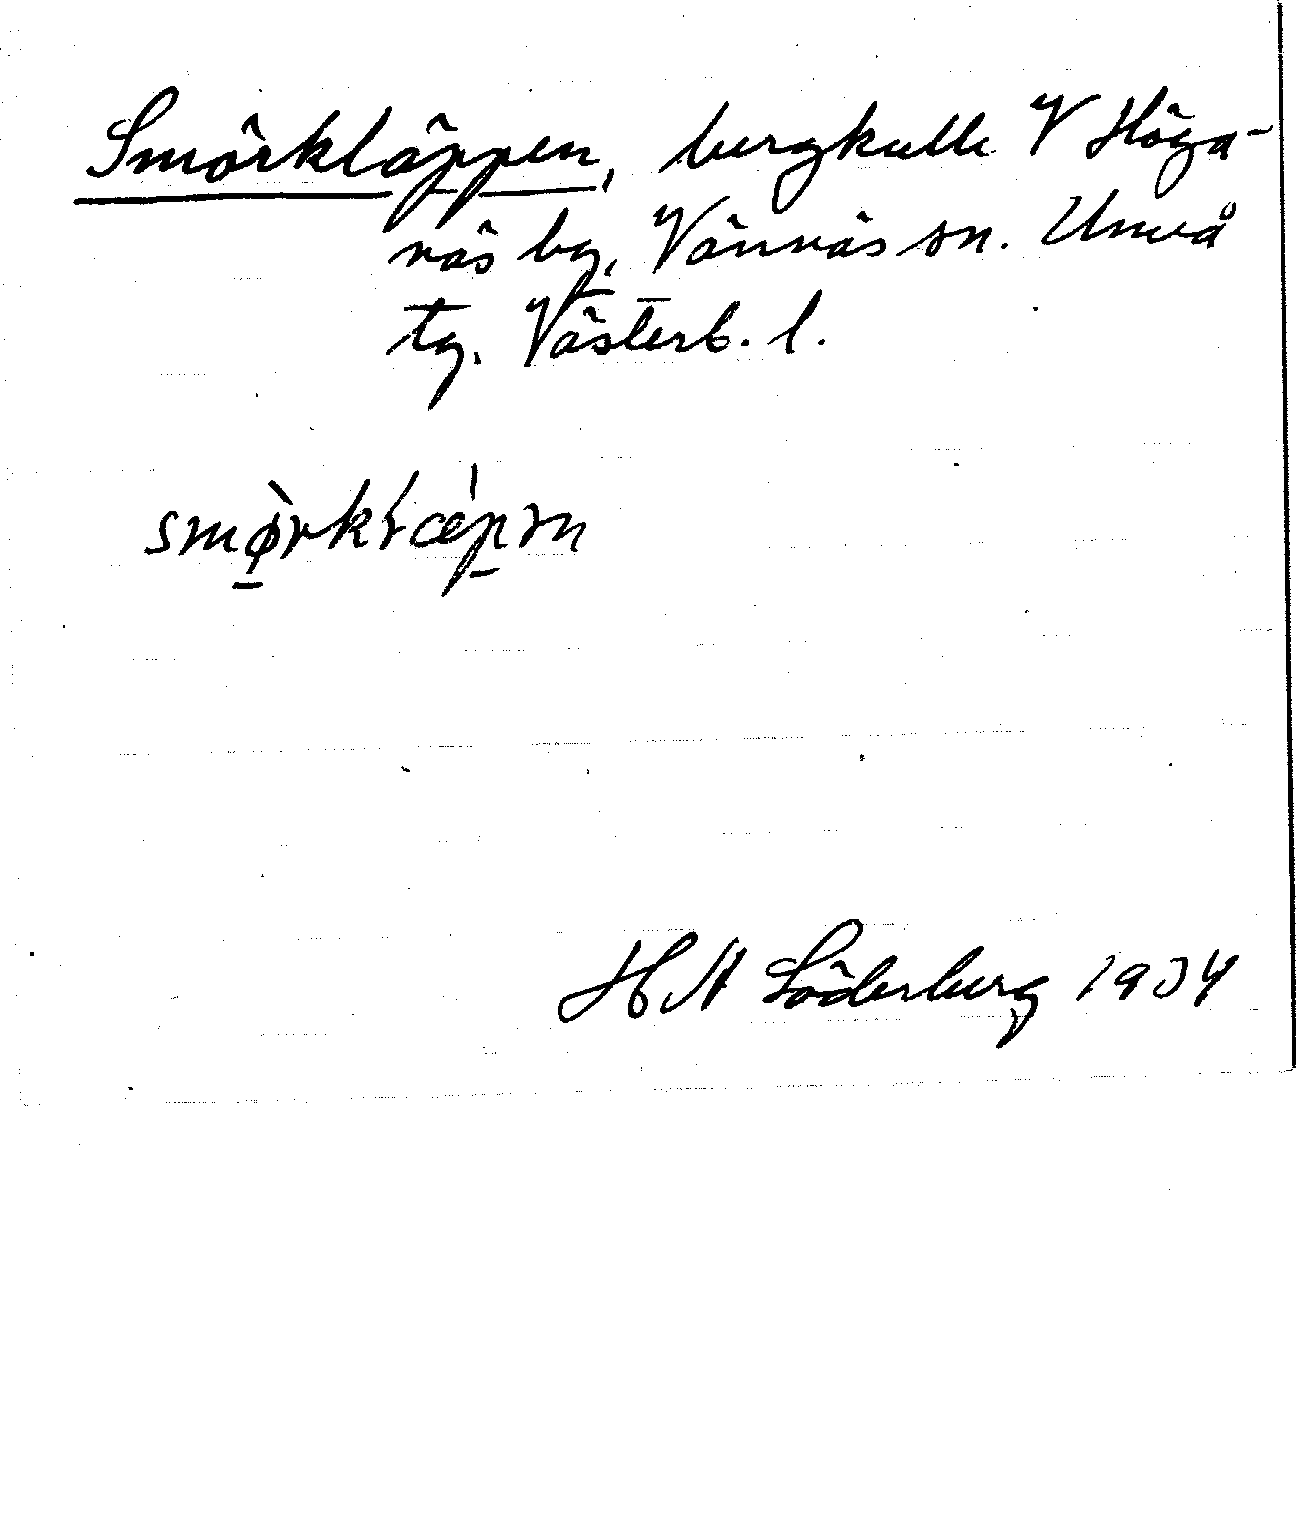 Smörkläppen, bergkulle V Höga-
näs by, Vännäs sn. Umeå
tg. Västerb. l.
smø̀rkɫæ̍pən
H A Söderberg 1934